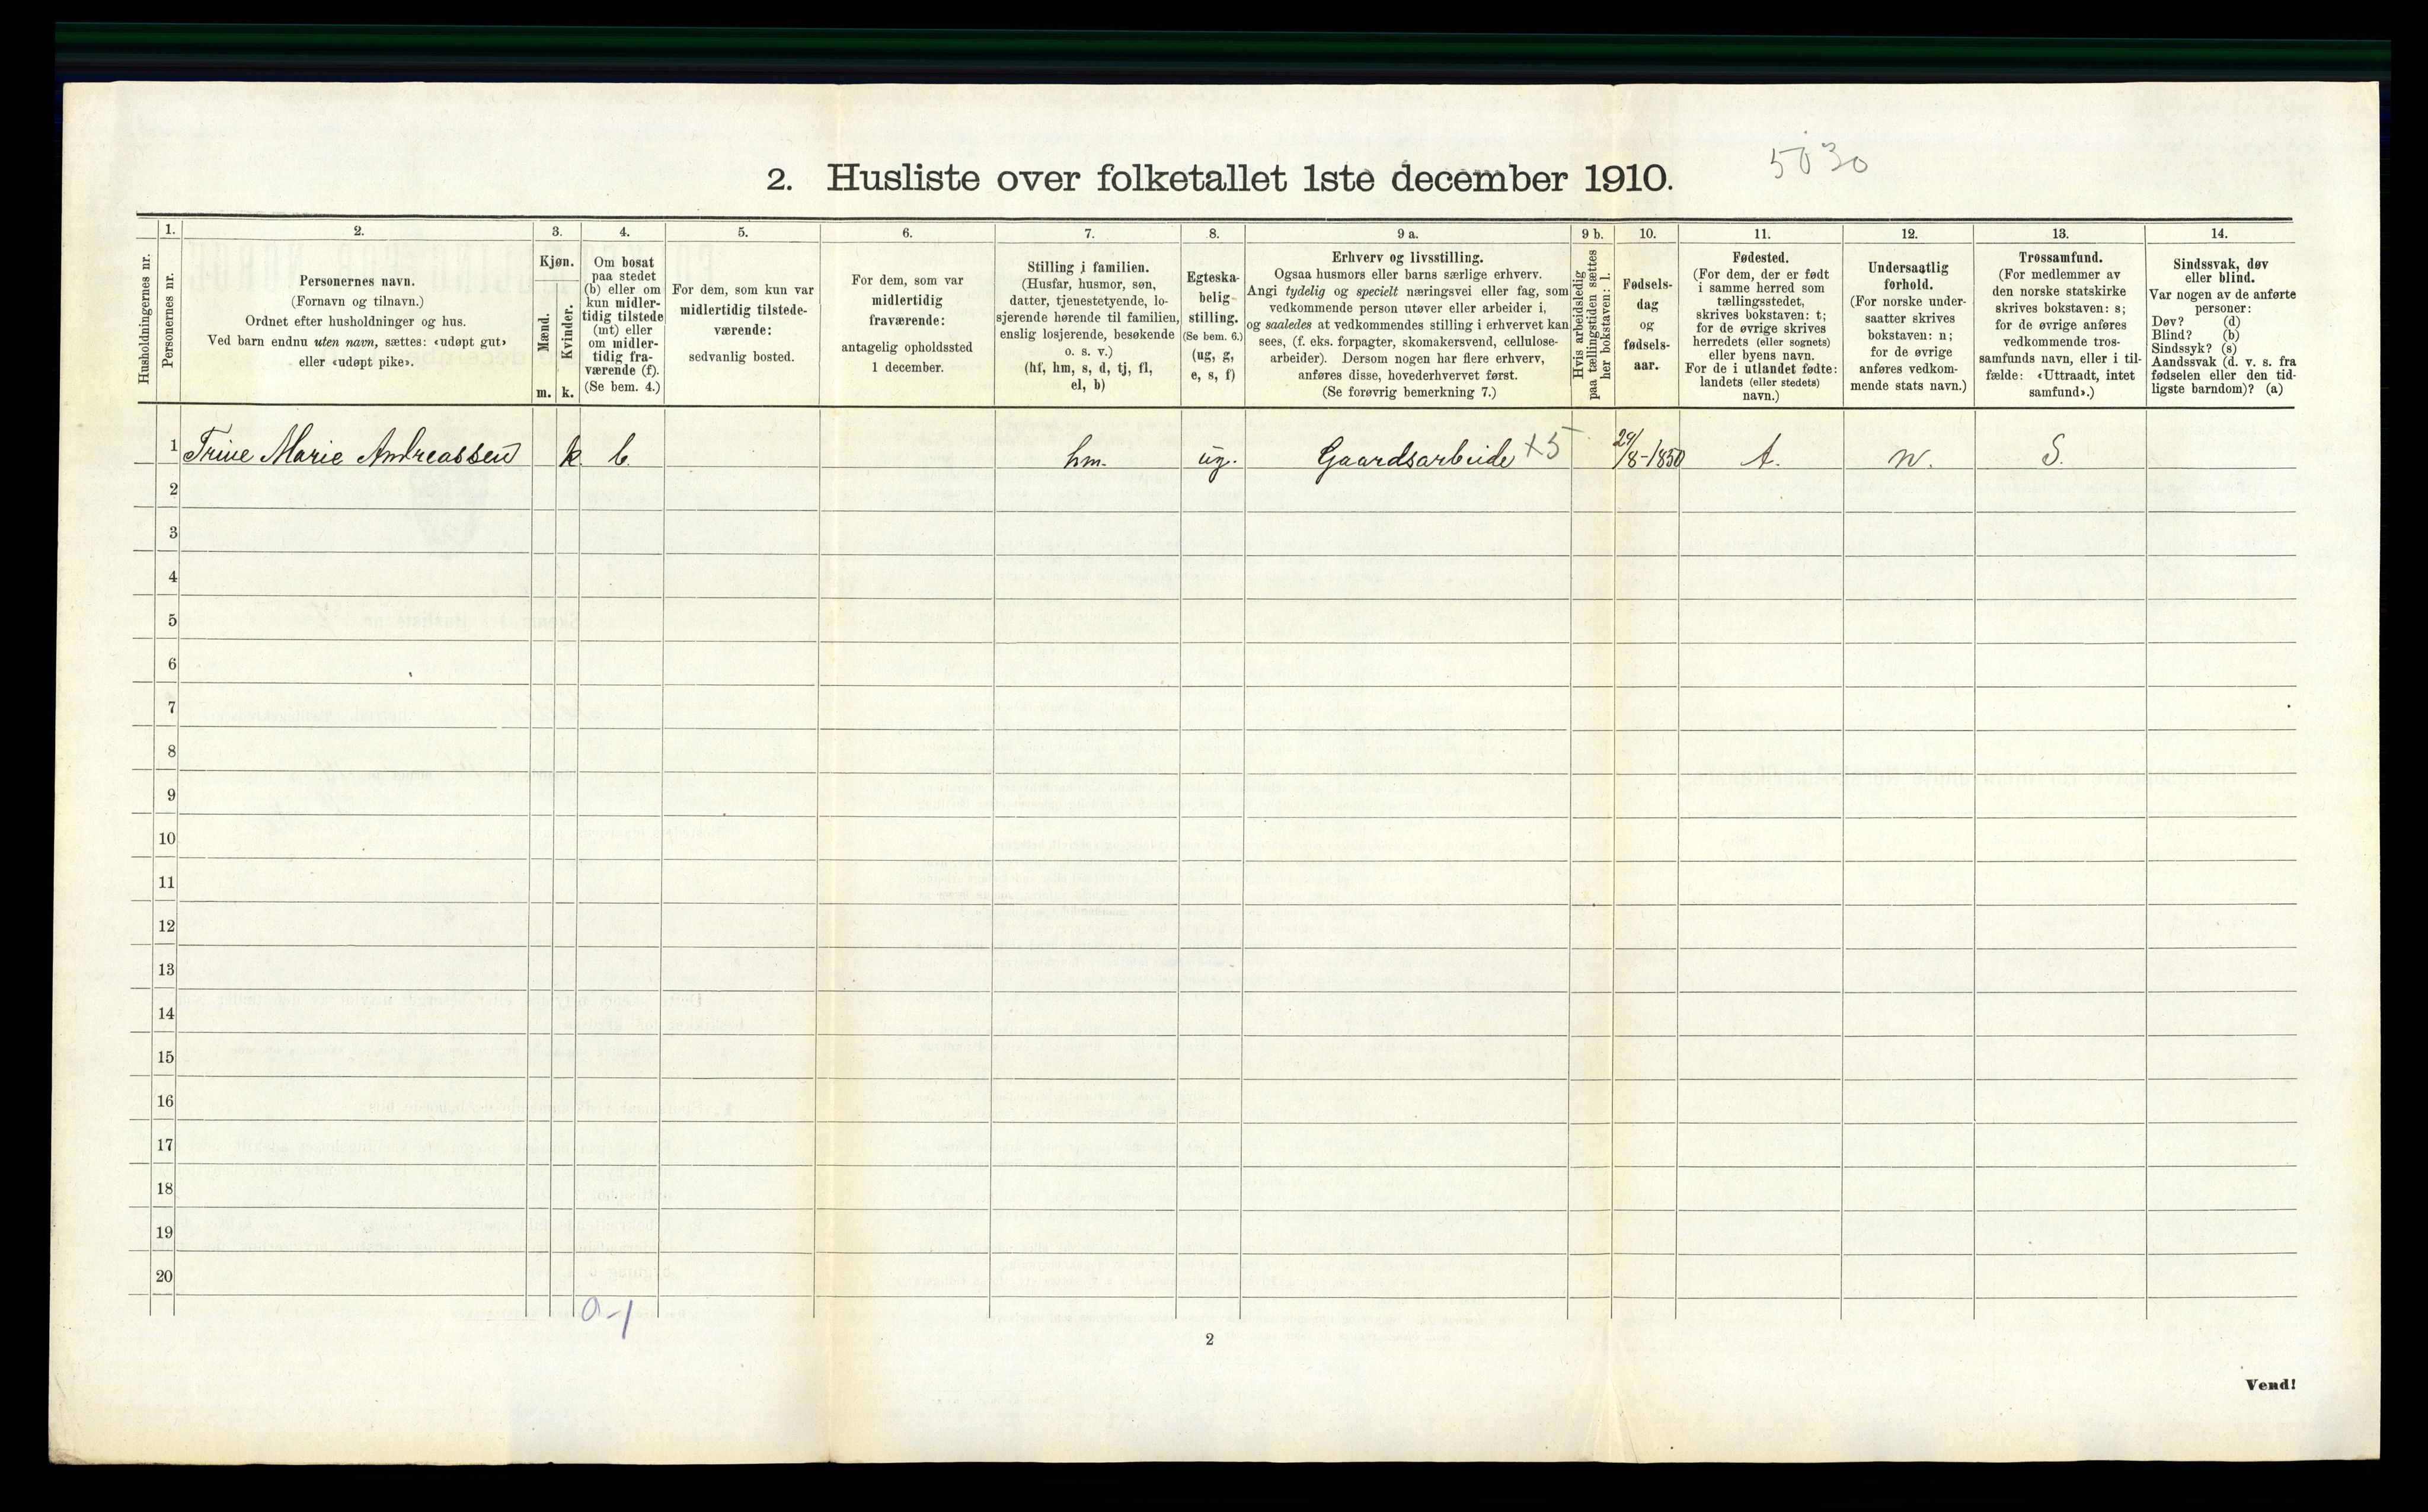 5030
2. Husliste over folketallet 1ste december 1910.
Husholdningernes nr.
1.
Personernes nr.
2.
Personernes navn.
(Fornavn og tilnavn.)
Ordnet efter husholdninger og hus.
Ved barn endnu uten navn, sættes: «udøpt gut»
eller «udøpt pike».
3.
Kjøn.
Mænd.
Kvinder.
m. k.
4.
Om bosat
paa stedet
(b) eller om
kun midler-
tidig tilstede
(mt) eller
om midler-
tidig fra-
værende (f).
(Se bem. 4.)
5.
For dem, som kun var
midlertidig tilstede-
værende:
sedvanlig bosted.
6.
For dem, som var
midlertidig
fraværende:
antagelig opholdssted
1 december.
7.
Stilling i familien.
(Husfar, husmor, søn,
datter, tjenestetyende, lo-
sjerende hørende til familien,
enslig losjerende, besøkende
o. s. v.)
(hf, hm, s, d, tj, fl,
el, b)
8.
Egteska-
belig
stilling.
(Se bem. 6.)
(ug, g,
e, s, f)
9 a.
Erhverv og livsstilling.
Ogsaa husmors eller barns særlige erhverv.
Angi tydelig og specielt næringsvei eller fag, som
vedkommende person utøver eller arbeider i,
og saaledes at vedkommendes stilling i erhvervet kan
sees, (f. eks. forpagter, skomakersvend, cellulose-
arbeider). Dersom nogen har flere erhverv,
anføres disse, hovederhvervet først.
(Se forøvrig bemerkning 7.)
9 b.
Hvis arbeidsledig
paa tællingstiden sættes
her bokstaven: l.
10.
Fødsels-
dag
og
fødsels-
aar.
11.
Fødested.
(For dem, der er født
i samme herred som
tællingsstedet,
skrives bokstaven: t;
for de øvrige skrives
herredets (eller sognets)
eller byens navn.
For de i utlandet fødte:
landets (eller stedets)
navn.)
12.
Undersaatlig
forhold.
(For norske under-
saatter skrives
bokstaven: n;
for de øvrige
anføres vedkom-
mende stats navn.)
13.
Trossamfund.
(For medlemmer av
den norske statskirke
skrives bokstaven: s;
for de øvrige anføres
vedkommende tros-
samfunds navn, eller i til-
fælde: «Uttraadt, intet
samfund».)
14.
Sindssvak, døv
eller blind.
Var nogen av de anførte
personer:
Døv? (d)
Blind? (b)
Sindssyk? (s)
Aandssvak (d. v. s. fra
fødselen eller den tid-
ligste barndom)? (a)
1 Trine Marie Andreassen k. b. hm. ug. Gaardsarbeide X5 29/8-1850 t. n. S.
2
3
4
5
6
7
8
9
10
11
12
13
14
15
16
17
18
19
20
0-1
2
Vend!